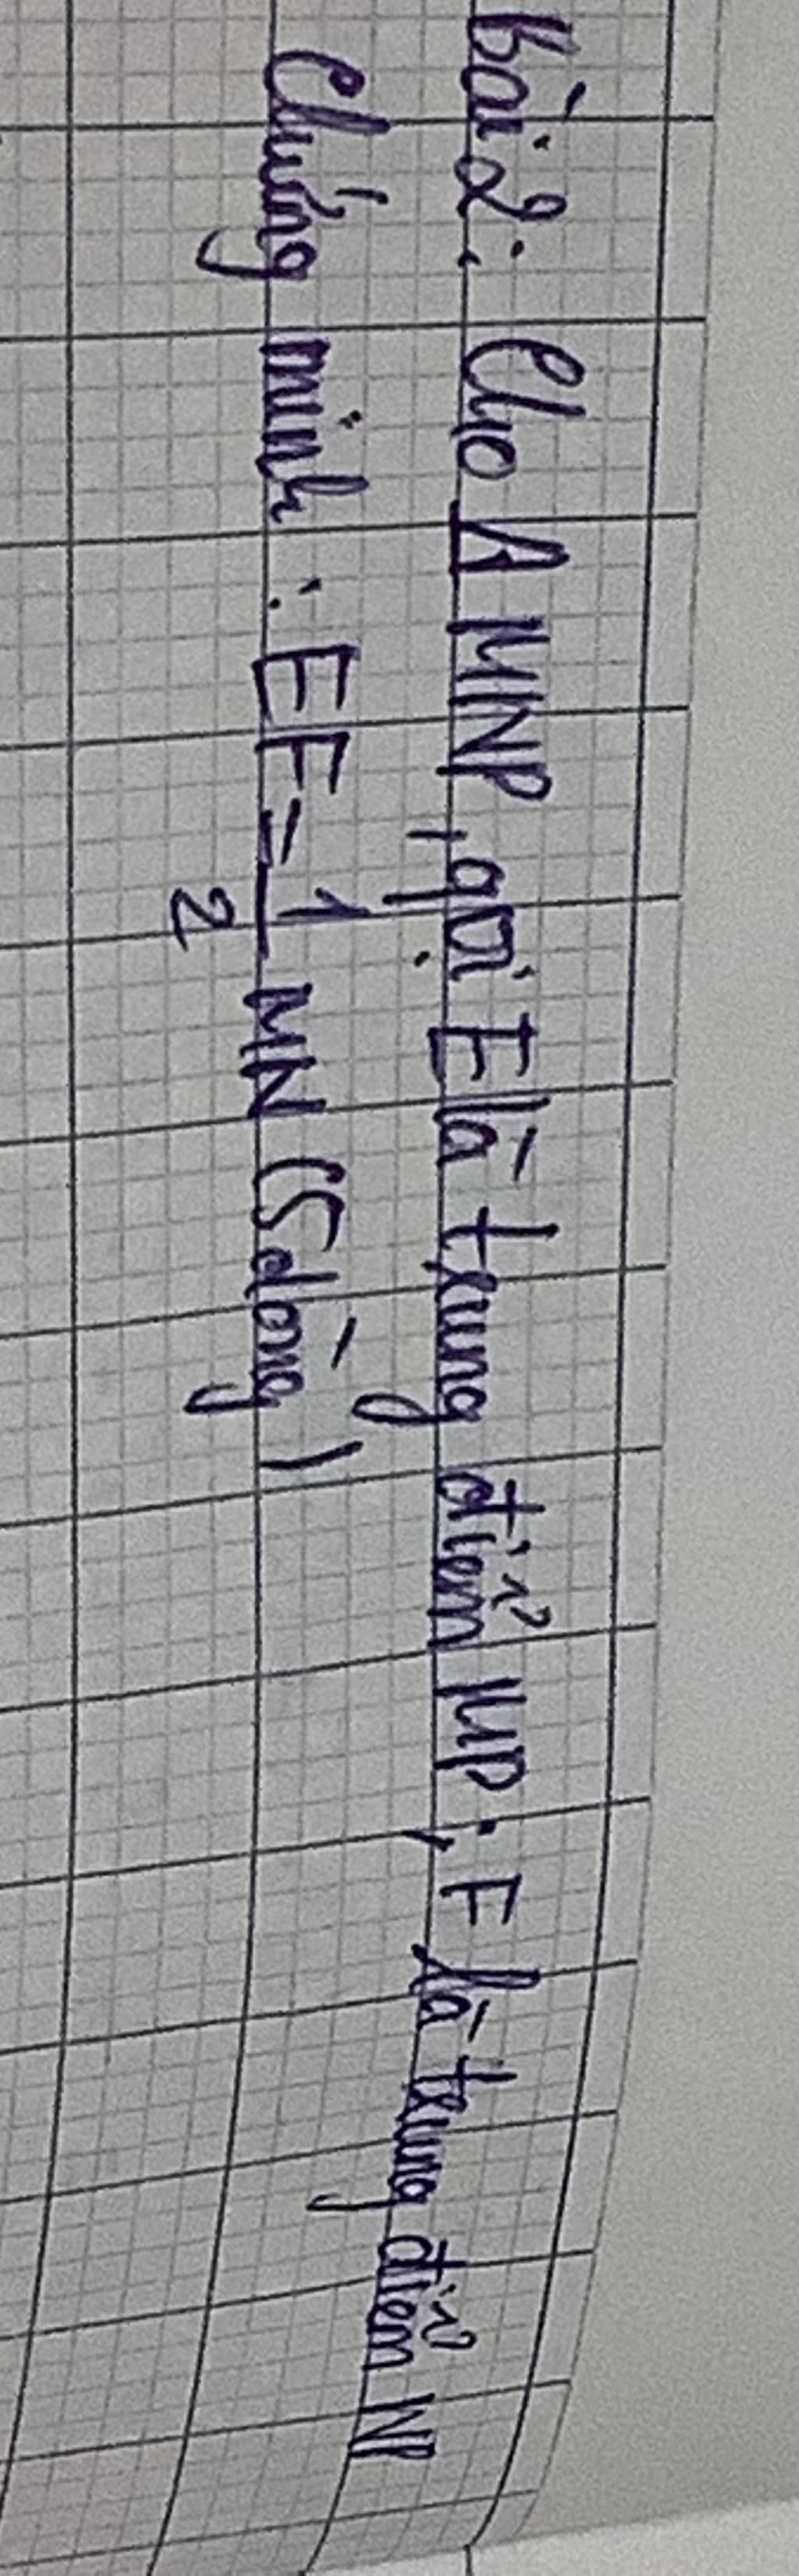 Bài 2: Cho Δ MNP, gọi E là trung điểm MP; F là trung điểm NP
Chứng minh : EF = 1/2 MN (5 dòng)